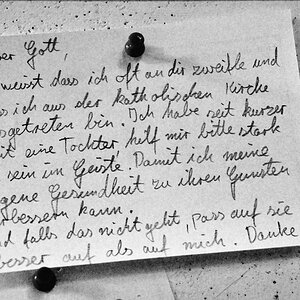 ber Gott,
weisst dass ich oft an dir zweifle und
ss ich aus der katholischen Kirche
sgetreten bin. Ich habe seit kurzer
it eine Tochter hilf mir bitte stark
sein im Geiste. Damit ich meine
gene Gesundheit zu ihren Gunsten
bessern kann.
d falls das nicht geht, pass auf sie
besser auf als auf mich. Danke